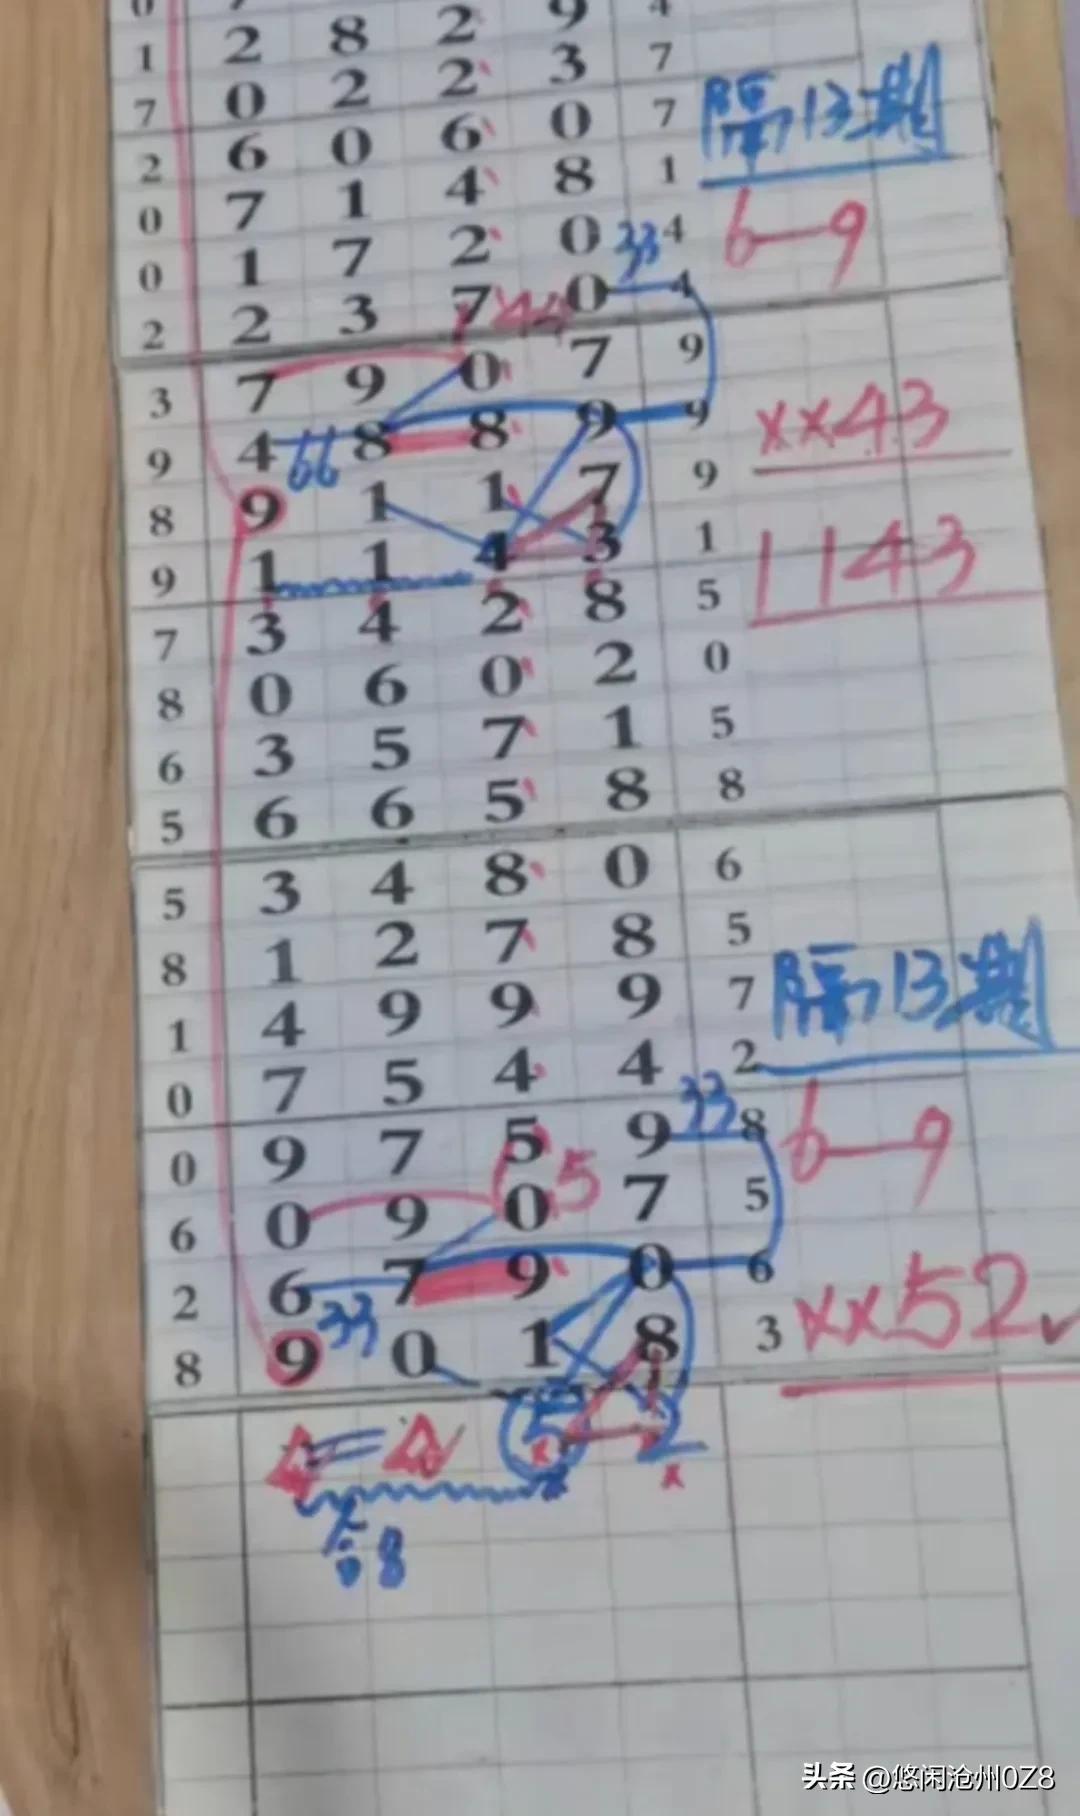 2 8 2 9 4
1 0 2 2 3 7
7 6 0 6 0 7
2 7 1 4 8 1
0 1 7 2 0 33 4
0 2 3 7 0 4
2
隔13期
6—9
44
3 7 9 0 7 9
9 4 66 8 8 9 9
8 9 1 1 7 9
9 1 1 4 3 1
××43
1143
7 3 4 2 8 5
8 0 6 0 2 0
6 3 5 7 1 5
5 6 6 5 8 8
5 3 4 8 0 6
8 1 2 7 8 5
1 4 9 9 9 7
0 7 5 4 4 2
隔13期
0 9 7 5 9 33 8
6 0 9 0 5 7 5
6—9
2 6 33 7 9 0 6
8 9 0 1 8 3
××52
= 5 2
× ×
合8
头条 @悠闲沧州0Z8